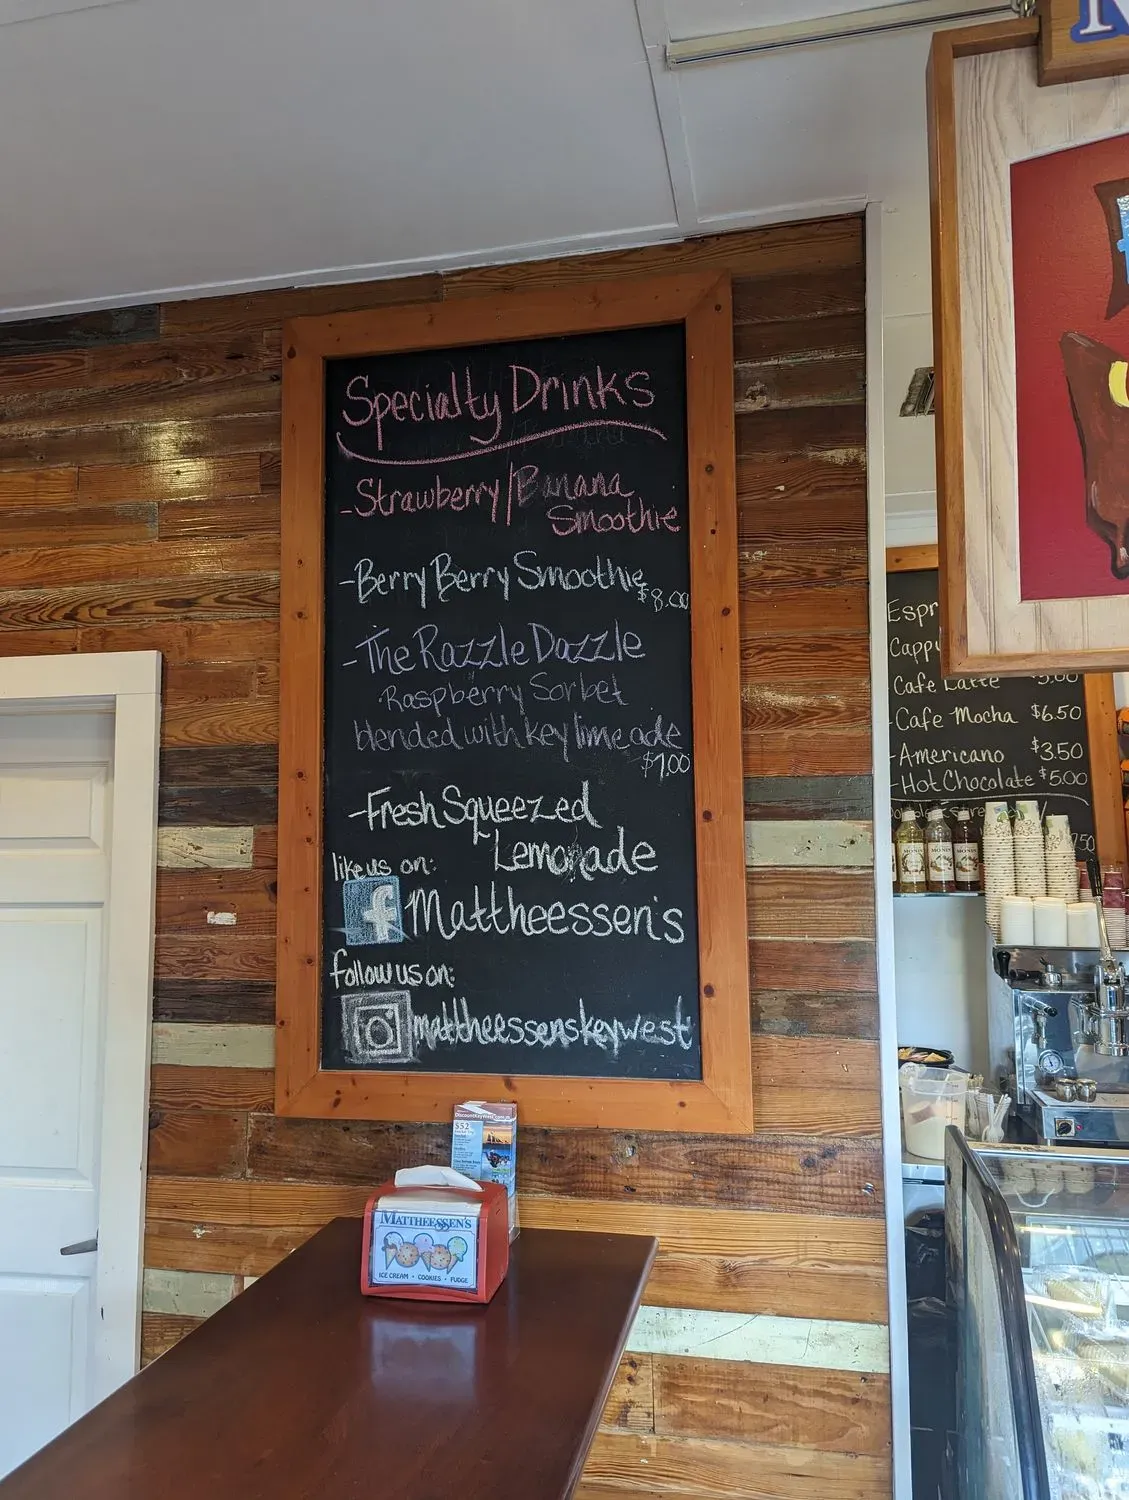 Specialty Drinks
-Strawberry/Banana
Smoothie
-Berry Berry Smoothie
$8.00
-The Razzle Dazzle
Raspberry Sorbet
blended with key limeade
$7.00
-Fresh Squeezed
Lemonade
like us on:
f Mattheessen's
follow us on:
mattheessenskeywest
Espr
Capp
Cafe Latte 5.00
-Cafe Mocha $6.50
-Americano $3.50
-Hot Chocolate $5.00
MONIN
MONIN
$52
MATTHEESSEN'S
ICE CREAM • COOKIES • FUDGE